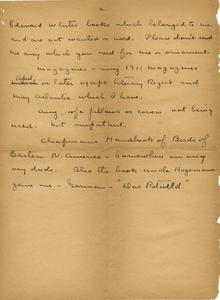 2.
Edward White books which belonged to me
and are not wanted or used. Please don't send
me any which you need for use or ornament.
Magazines - any 1911 magazines
or later except Literary Digest and
May Atlantic which I have.
Any sofa pillows or covers not being
used. Not important.
Chapman's Handbook of Birds of
Eastern N. America - somewhere in way
my desk. Also the book Uncle Hagemann
gave me - German - "Das